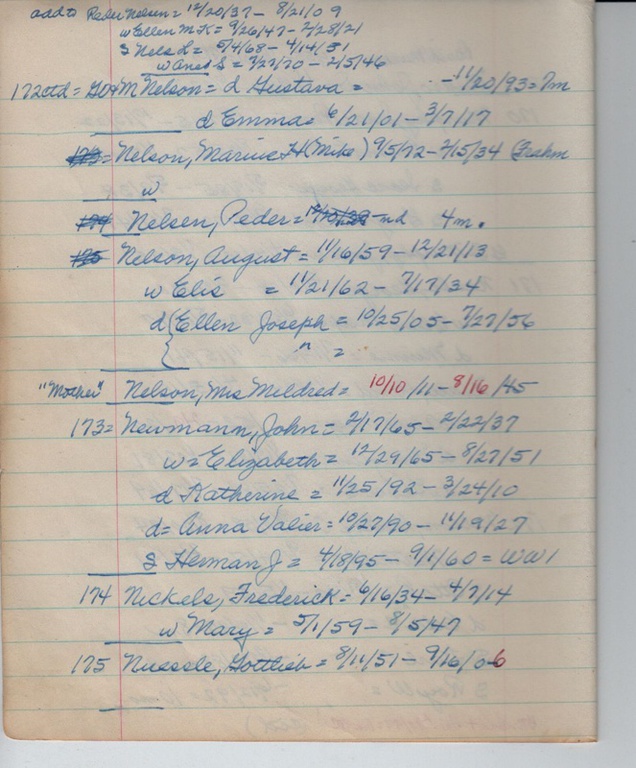 add to Peder Nelsen = 12/20/37 - 8/21/09
w Ellen M K = 9/26/47 - 2/28/21
S Nels L = 5/4/68 - 4/14/31
w S = 7/22/70 - 2/5/46
172ctd = M Nelson = d Gustava = - 11/20/93 = 7m
d Emma = 6/21/01 - 3/7/17
Nelson, Marius H (Mike) 9/5/72 - 2/15/34 (Frahm
w
174 Nelsen, Peder = nd 4m.
Nelson, August = 11/16/59 - 12/21/13
w Elis = 11/21/62 - 7/17/34
d { Ellen Joseph = 10/25/05 - 7/27/56
{ " =
"Mother" Nelson, Mrs Mildred = 10/10/11 - 8/16/45
173 = Newmann, John = 2/17/65 - 2/22/37
w = Elizabeth = 12/29/65 - 8/27/51
d Katherine = 11/25/92 - 3/24/10
d = Anna Valier = 10/27/90 - 11/19/27
S Herman J = 4/18/95 - 9/1/60 = WW1
174 Nickels, Frederick = 6/16/34 - 4/7/14
w Mary = 5/1/59 - 8/5/47
175 Nuessle, Gottlieb = 8/11/51 - 9/16/06